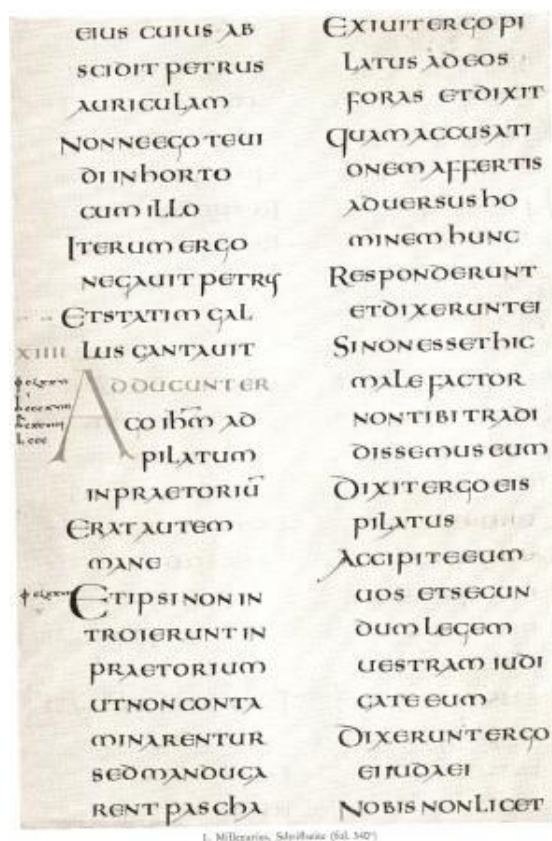 EIUS CUIUS AB
SCIDIT PETRUS
AURICULAM
NONNE EGO TE UI
DI IN HORTO
CUM ILLO
ITERUM ERGO
NEGAUIT PETRUS
ET STATIM GAL
XIIII LUS CANTAUIT
ADDUCUNT ER
GO IHM AD
PILATUM
IN PRAETORIU
ERAT AUTEM
MANE
ET IPSI NON IN
TROIERUNT IN
PRAETORIUM
UT NON CONTA
MINARENTUR
SED MANDUCA
RENT PASCHA
EXIUIT ERGO PI
LATUS AD EOS
FORAS ET DIXIT
QUAM ACCUSATI
ONEM AFFERTIS
ADUERSUS HO
MINEM HUNC
RESPONDERUNT
ET DIXERUNT EI
SI NON ESSET HIC
MALEFACTOR
NON TIBI TRADI
DISSEMUS EUM
DIXIT ERGO EIS
PILATUS
ACCIPITE EUM
UOS ET SECUN
DUM LEGEM
UESTRAM IUDI
CATE EUM
DIXERUNT ERGO
EI IUDAEI
NOBIS NON LICET
1. Millenarius, Schriftseite (fol. 340ᵛ)